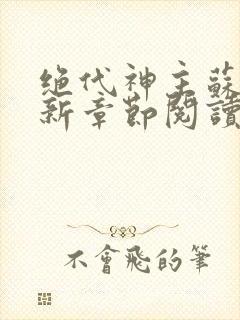 絕代神主蘇
新章節閱讀
不會飛的筆